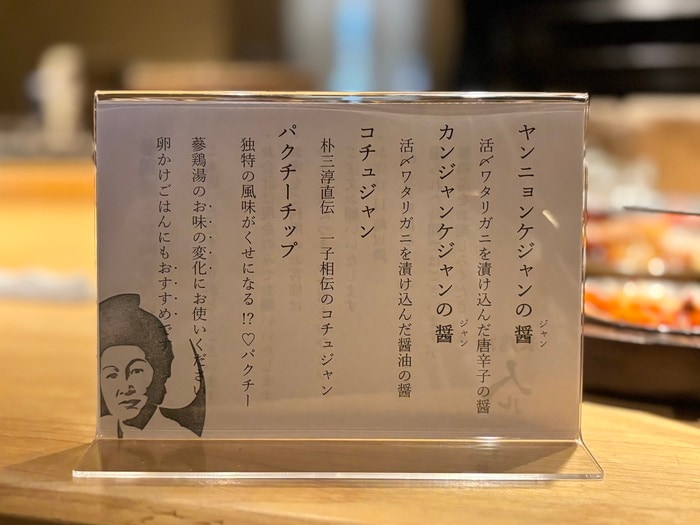 ヤンニョンケジャンの醤
ジャン
活〆ワタリガニを漬け込んだ唐辛子の醤
カンジャンケジャンの醤
ジャン
活〆ワタリガニを漬け込んだ醤油の醤
コチュジャン
朴三淳直伝 一子相伝のコチュジャン
パクチーチップ
独特の風味がくせになる!?♡パクチー
蔘鶏湯のお味の変化にお使いください
卵かけごはんにもおすすめです